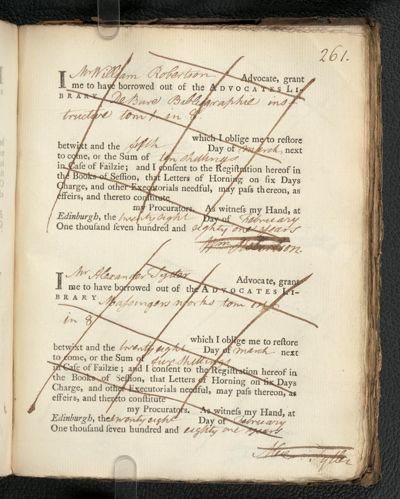 261.
I Mr William Robertson Advocate, grant
me to have borrowed out of the ADVOCATES LI-
BRARY De Bure Bibliographie ins
tructive tom 1 in 8
which I oblige me to restore
betwixt and the fifth Day of March next
to come, or the Sum of ten shillings
in Case of Failzie; and I consent to the Registration hereof in
the Books of Session, that Letters of Horning on six Days
Charge, and other Executorials needful, may pass thereon, as
effeirs, and thereto constitute
my Procurators. As witness my Hand, at
Edinburgh, the twenty eight Day of February
One thousand seven hundred and eighty one years
Wm Robertson
I Mr Alexander Tytler Advocate, grant
me to have borrowed out of the ADVOCATES LI-
BRARY Massingers works tom
in 8
which I oblige me to restore
betwixt and the twenty eight Day of March next
to come, or the Sum of five shillings
in Case of Failzie; and I consent to the Registration hereof in
the Books of Session, that Letters of Horning on six Days
Charge, and other Executorials needful, may pass thereon, as
effeirs, and thereto constitute
my Procurators. As witness my Hand, at
Edinburgh, the twenty eight Day of February
One thousand seven hundred and eighty one years
Tytler